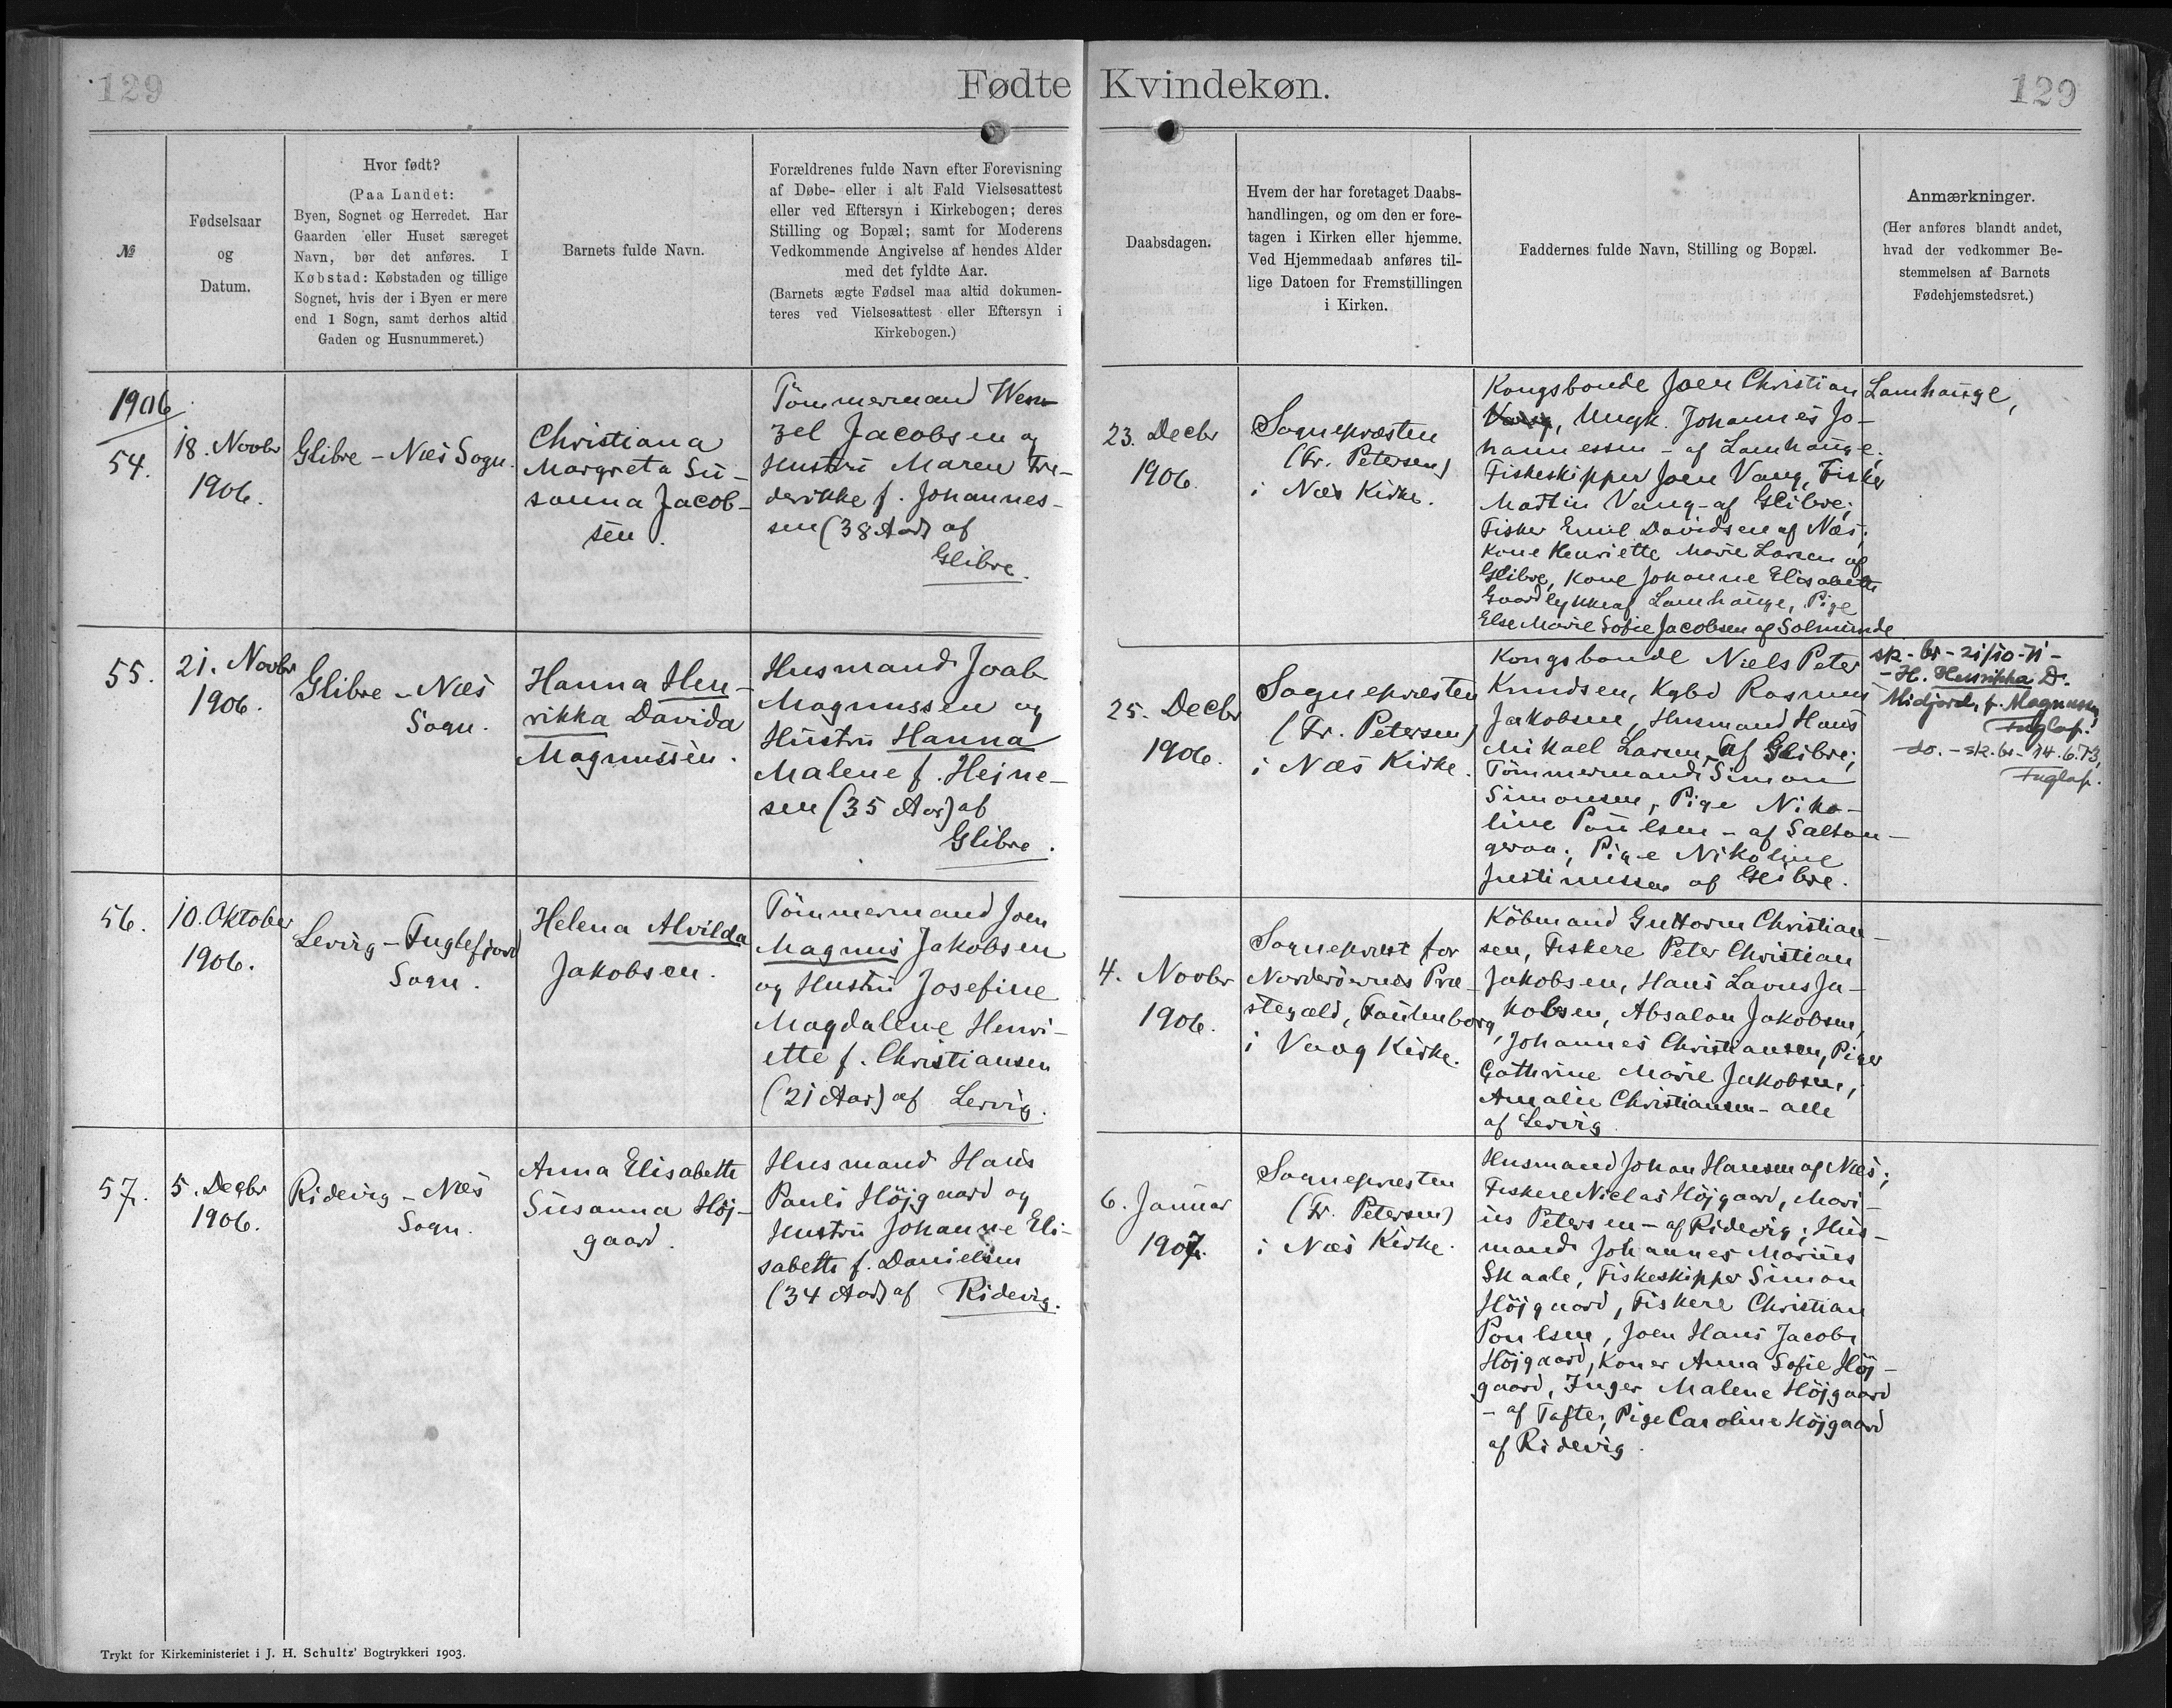 129
Fødte Kvindekøn.
129
№
Fødselsaar
og
Datum.
Hvor født?
(Paa Landet:
Byen, Sognet og Herredet. Har
Gaarden eller Huset særeget
Navn, bør det anføres. I
Købstad: Købstaden og tillige
Sognet, hvis der i Byen er mere
end 1 Sogn, samt derhos altid
Gaden og Husnummeret.)
Barnets fulde Navn.
Forældrenes fulde Navn efter Forevisning
af Døbe- eller i alt Fald Vielsesattest
eller ved Eftersyn i Kirkebogen; deres
Stilling og Bopæl; samt for Moderens
Vedkommende Angivelse af hendes Alder
med det fyldte Aar.
(Barnets ægte Fødsel maa altid dokumen-
teres ved Vielsesattest eller Eftersyn i
Kirkebogen.)
Daabsdagen.
Hvem der har foretaget Daabs-
handlingen, og om den er fore-
tagen i Kirken eller hjemme.
Ved Hjemmedaab anføres til-
lige Datoen for Fremstillingen
i Kirken.
Faddernes fulde Navn, Stilling og Bopæl.
Anmærkninger.
(Her anføres blandt andet,
hvad der vedkommer Be-
stemmelsen af Barnets
Fødehjemstedsret.)
1906
54.
18. Novbr
1906.
Glibre - Næs Sogn.
Christiana
Margreta Su-
sanna Jacob-
sen.
Tömmermand Wen-
zel Jacobsen og
Hustru Maren Fre-
derikke f. Johannes-
sen (38 Aar) af
Glibre.
23. Decbr
1906.
Sognepræsten
(Fr. Petersen)
i Næs Kirke.
Kongsbonde Joen Christian Lamhauge,
Vang, Ungk. Johannes Jo-
hannessen - af Lamhauge;
Fiskeskipper Joen Vang, Fisker
Martin Vang - af Glibre;
Fisker Emil Davidsen af Næs;
Kone Henriette Marie Larsen af
Glibre, Kone Johanne Elisabeth
Gaardlykke af Lamhauge, Pige
Else Marie Sofie Jacobsen af Solmunde
55.
21. Novbr
1906.
Glibre - Næs
Sogn.
Hanna Hen-
rikka Davida
Magnussen.
Husmand Joab
Magnussen og
Hustru Hanna
Malene f. Hejne-
sen (35 Aar) af
Glibre.
25. Decbr
1906.
Sognepræsten
(Fr. Petersen)
i Næs Kirke.
Kongsbonde Niels Peter
Knudsen, Kgbd Rasmus
Jakobsen, Husmand Hans
Mikael Larsen, af Glibre;
Tömmermand Simon
Simonsen, Pige Niko-
line Poulsen - af Saltan-
graa; Pige Nikoline
Justinussen af Glibre.
sk-br-21/10-71-
-H. Henrikka D.
Midjord, f. Magnussen
Fuglaf.
do. - sk.br. 14.6.73,
Fuglaf.
56.
10. Oktober
1906.
Lervig - Fuglefjord
Sogn.
Helena Alvilda
Jakobsen.
Tömmermand Joen
Magnus Jakobsen
og Hustru Josefine
Magdalene Henri-
ette f. Christiansen
(21 Aar) af Lervig.
4. Novbr
1906.
Sognepræst for
Norderöernes Præ-
stegæld, Faulenborg,
i Vaag Kirke.
Köbmand Guttorm Christian-
sen, Fiskere Peter Christian
Jakobsen, Hans Lavus Ja-
kobsen, Absalon Jakobsen,
Johannes Christiansen, Piger
Cathrine Marie Jakobsen,
Amalie Christiansen - alle
af Lervig.
57.
5. Decbr
1906.
Ridevig - Næs
Sogn.
Anna Elisabeth
Susanna Höj-
gaard.
Husmand Hans
Pauli Höjgaard og
Hustru Johanne Eli-
sabeth f. Danielsen
(34 Aar) af Ridevig.
6. Januar
1907.
Sognepræsten
(Fr. Petersen)
i Næs Kirke.
Husmand Johan Hansen af Næs;
Fiskere Niclas Höjgaard, Mari-
us Petersen - af Ridevig; Hus-
mand Johannes Marius
Skaale, Fiskeskipper Simon
Höjgaard, Fiskere Christian
Poulsen, Joen Hans Jacob
Höjgaard, Koner Anna Sofie Höj-
gaard, Inger Malene Höjgaard
- af Tofter, Pige Caroline Höjgaard
af Ridevig.
Trykt for Kirkeministeriet i J. H. Schultz' Bogtrykkeri 1903.